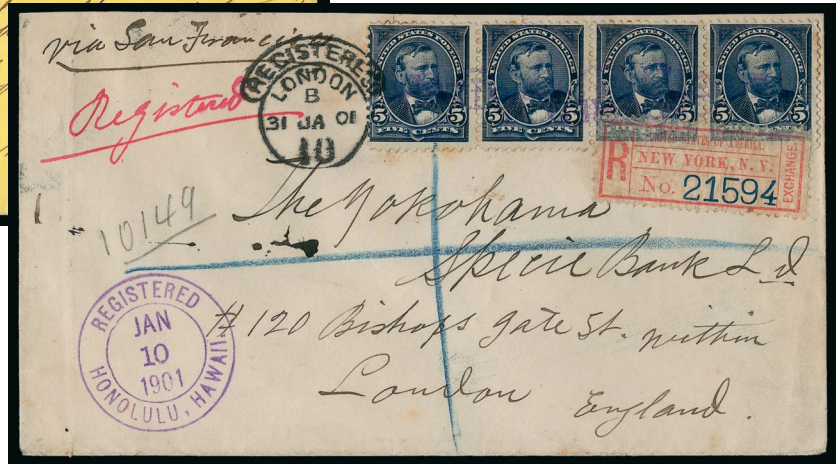 via San Francisco
Registered
REGISTERED
LONDON
B
31 JA 01
10
UNITED STATES POSTAGE
5 5
FIVE CENTS
UNITED STATES POSTAGE
5 5
FIVE CENTS
UNITED STATES POSTAGE
5 5
FIVE CENTS
UNITED STATES POSTAGE
5 5
FIVE CENTS
UNITED STATES OF AMERICA.
R
NEW YORK, N.Y.
No. 21594
EXCHANGE
10149
The Yokohama
Specie Bank Ld
# 120 Bishops gate St. within
London
England.
REGISTERED
JAN
10
1901
HONOLULU, HAWAII